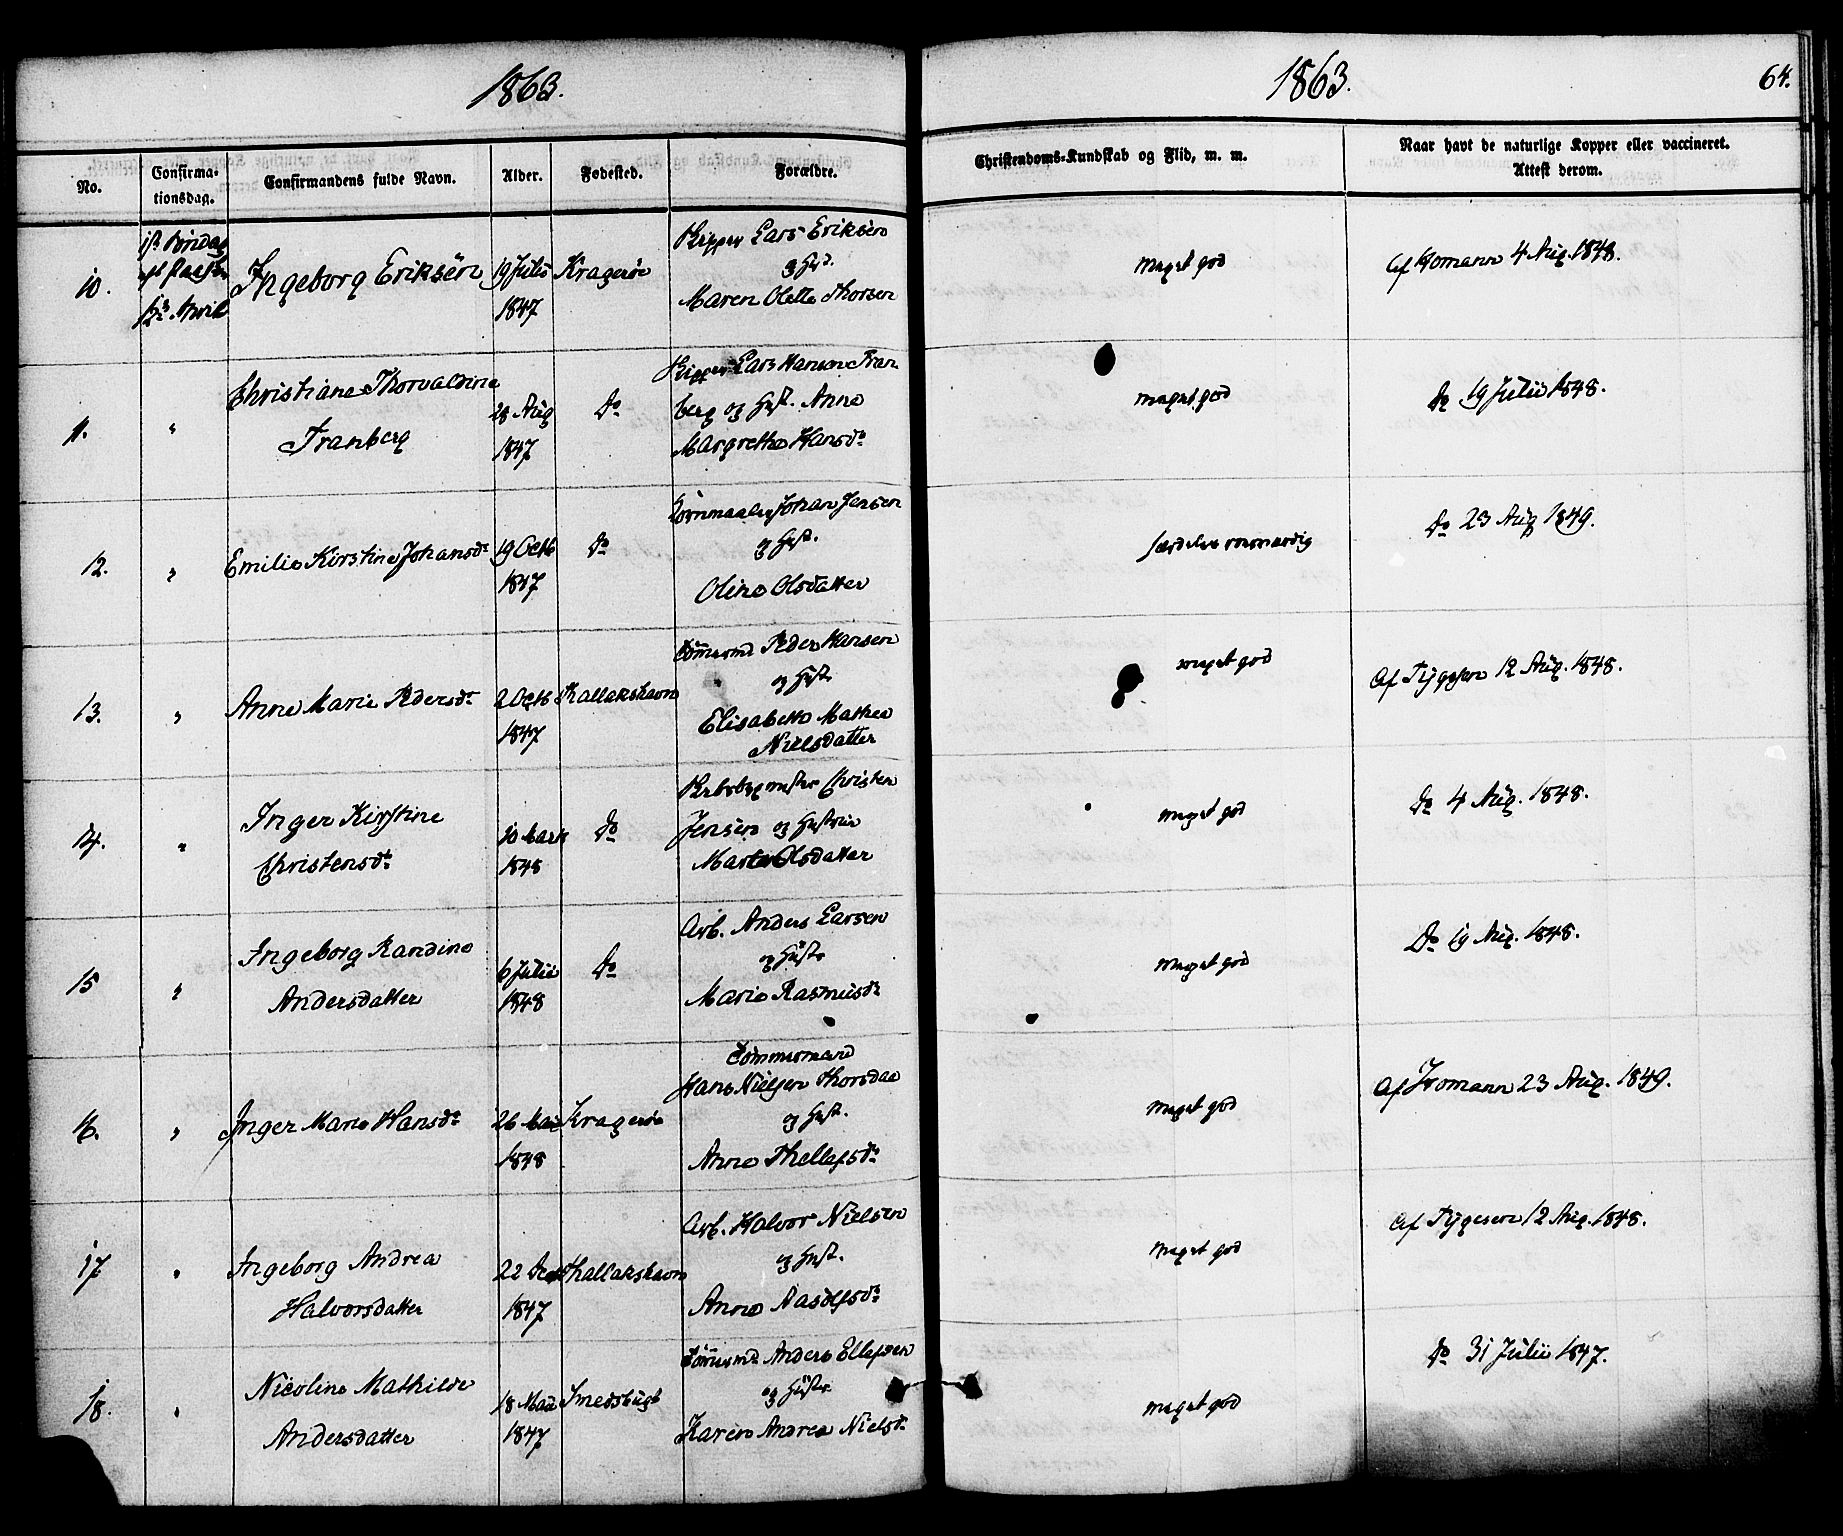 1863.
1863.
64.
No.
Confirma-
tionsdag.
Confirmandens fulde Navn.
Alder.
Fødested.
Forældre.
Christendoms-Kundskab og Flid, m. m.
Naar havt de naturlige Kopper eller vaccineret.
Attest derom.
10.
1ste Søndag
eft Paaske
12te April
Ingeborg Eriksen
19 Julii
1847
Kragerøe
Skipper Lars Eriksen
og Hst.
Maren Olette Thorsen
Meget god
Af Homann 4 Aug. 1848.
11.
"
Christiane Thorvaldine
Franberg
28 Aug
1847
Do
Skipper Lars Hansen Fran
berg og Hust. Anne
Margrethe Hansdr
meget god
Do 19 Julii 1848.
12.
"
Emilie Kirstine Johansdr
19 Octb
1847
Do
Kornmaaler Johan Jensen
og Hust.
Oline Olsdatter
særdeles roesværdig
Do 23 Aug 1849.
13.
"
Anne Marie Pedersdr
2 Octb
1847
Kallakshavn
Tømmermd Peder Hansen
og Hust
Elisabeth Mathea
Nielsdatter
meget god
Af Tygesen 12 Aug. 1848.
14.
"
Inger Kirstine
Christensdr
10 Marts
1848
Do
Christen
Jensen og Hustrue
Marte Olsdatter
meget god
Do 4 Aug. 1848.
15
"
Ingeborg Randine
Andersdatter
6 Julii
1848
Do
Arb. Anders Larsen
og Hustr
Marie Rasmusdr
Meget god
Do 19 Aug. 1848.
16.
"
Inger Marie Hansdr
26 Mai
1848
Kragerøe
Tømmermand
Hans Nielsen Thorsdal
og Hust.
Anne Thellefsdr
Meget god
Af Homann 23 Aug. 1849.
17
"
Ingeborg Andrea
Halvorsdatter
22 Dec
1847
Kallakshavn
Arb. Halvor Nielsen
og Hust.
Anne Aasolfsdr
Meget god
Af Tygesen 12 Aug. 1848.
18.
"
Nicoline Mathilde
Andersdatter
18 Mai
1847
Smedsbugt
Tømmermd Anders Ellefsen
og Hustr
Karen Andrea Nielsdr
Meget god
Do 31 Julii 1847.